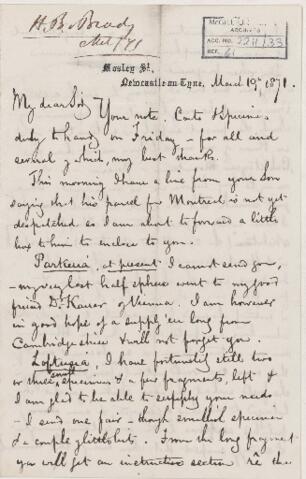 H. B. Brady
ACC. NO.
REF. 61
Mosley St.
Newcastle on Tyne, March 19th 1871.
My dear Sir
Your note, Carte & Specimens
duly to hand on Friday – for all and
several of which, my best thanks.
This morning I have a line from your Son
saying that his parcel for Montreal is not yet
despatched so I am about to forward a little
box to him to enclose to you.
Parkeria, at present I cannot send you,
– my very last half sphere went to my good
friend Dr Karrer of Vienna. I am however
in good hope of a supply 'ere long from
Cambridgeshire & will not forget you.
Loftusia, I have fortunately still two
or three small specimens & a few fragments, left &
I am glad to be able to supply your needs
– I send one fair – though small specimen
& a couple of little bits. From the long fragment
you will get an instructive section re the